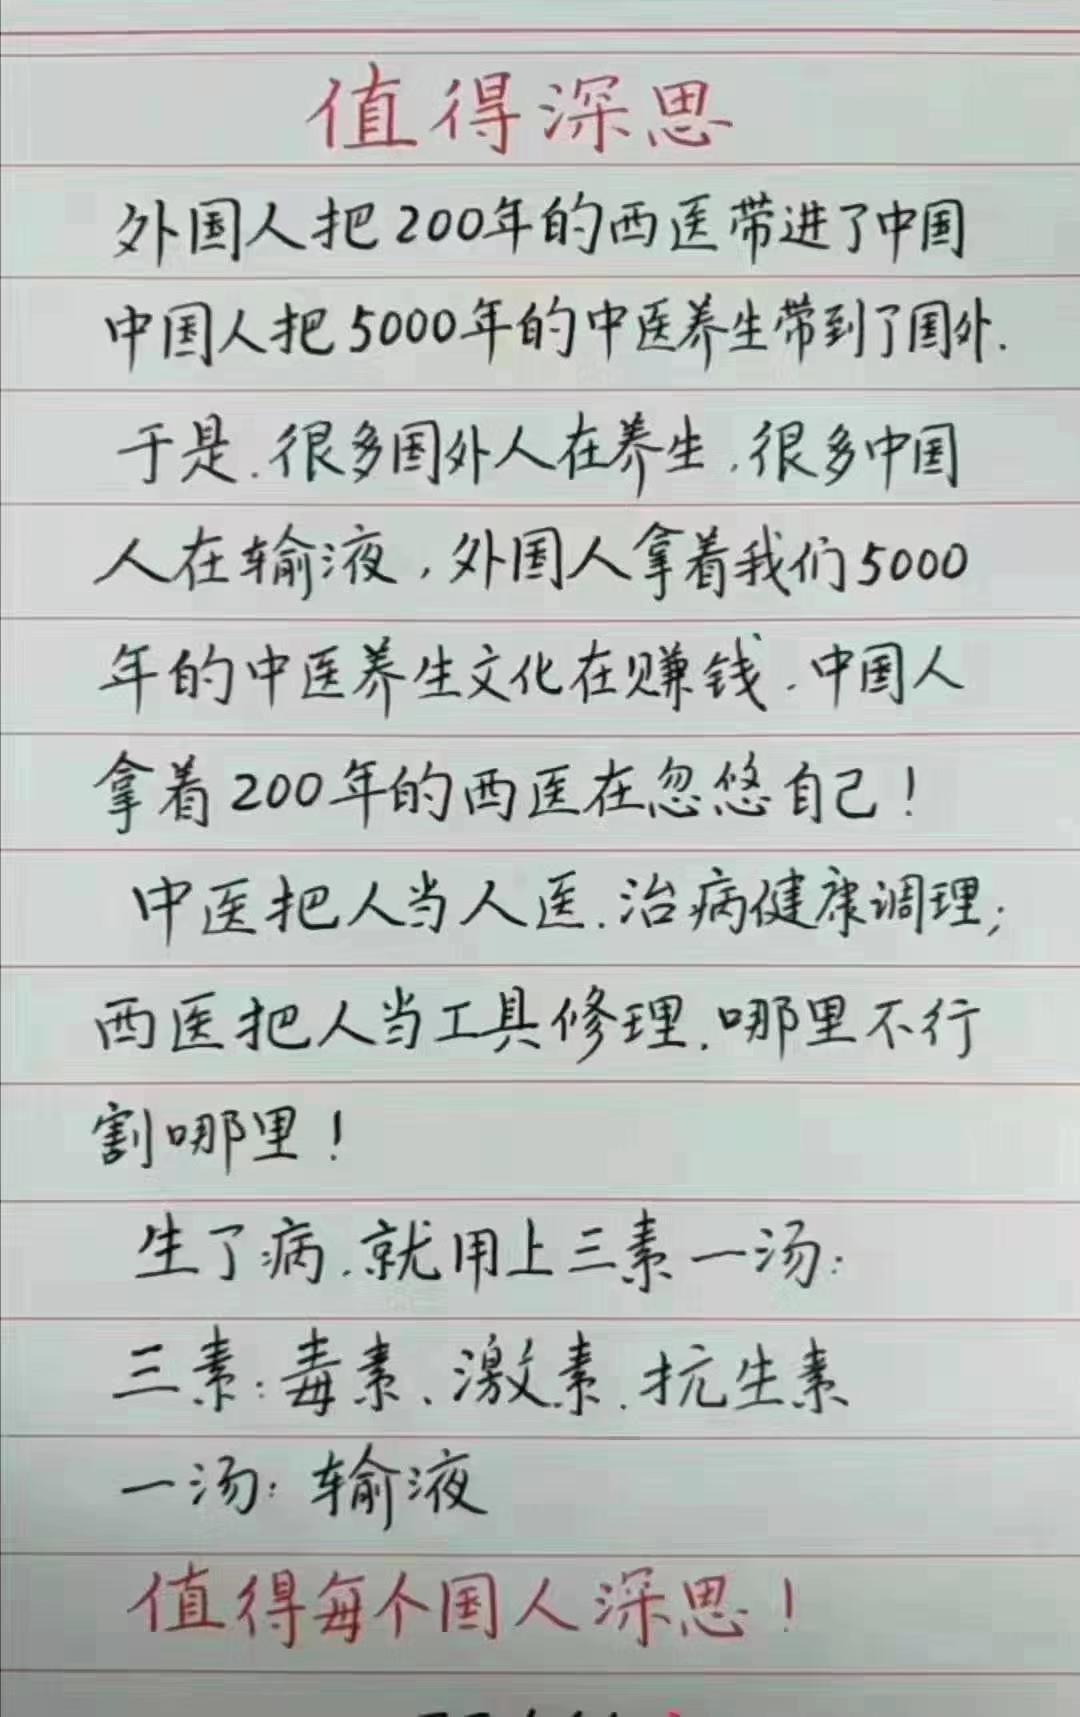 值得深思
外国人把200年的西医带进了中国
中国人把5000年的中医养生带到了国外.
于是.很多国外人在养生,很多中国
人在输液,外国人拿着我们5000
年的中医养生文化在赚钱.中国人
拿着200年的西医在忽悠自己!
中医把人当人医.治病健康调理;
西医把人当工具修理.哪里不行
割哪里!
生了病.就用上三素一汤:
三素:毒素、激素.抗生素
一汤:输液
值得每个国人深思!